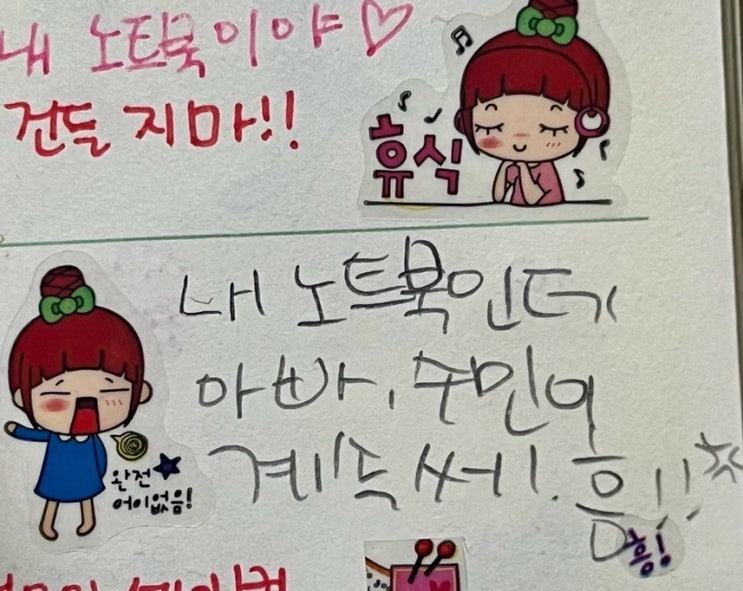 내 노트북이야♡
건들 지마!!
휴식
내 노트북인데
아빠, 주민이
계속 써!. 흠!!
완전
어이없음!
흥!